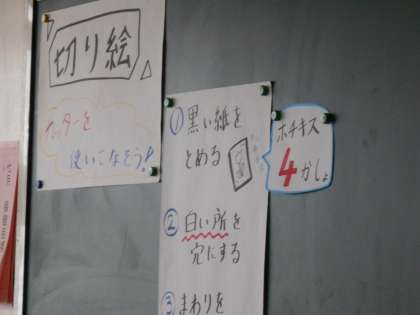 切り絵
カッターを
使いこなそう!
①黒い紙を
とめる
ホチキス
4かしょ
②白い所を
穴にする
③まわりを